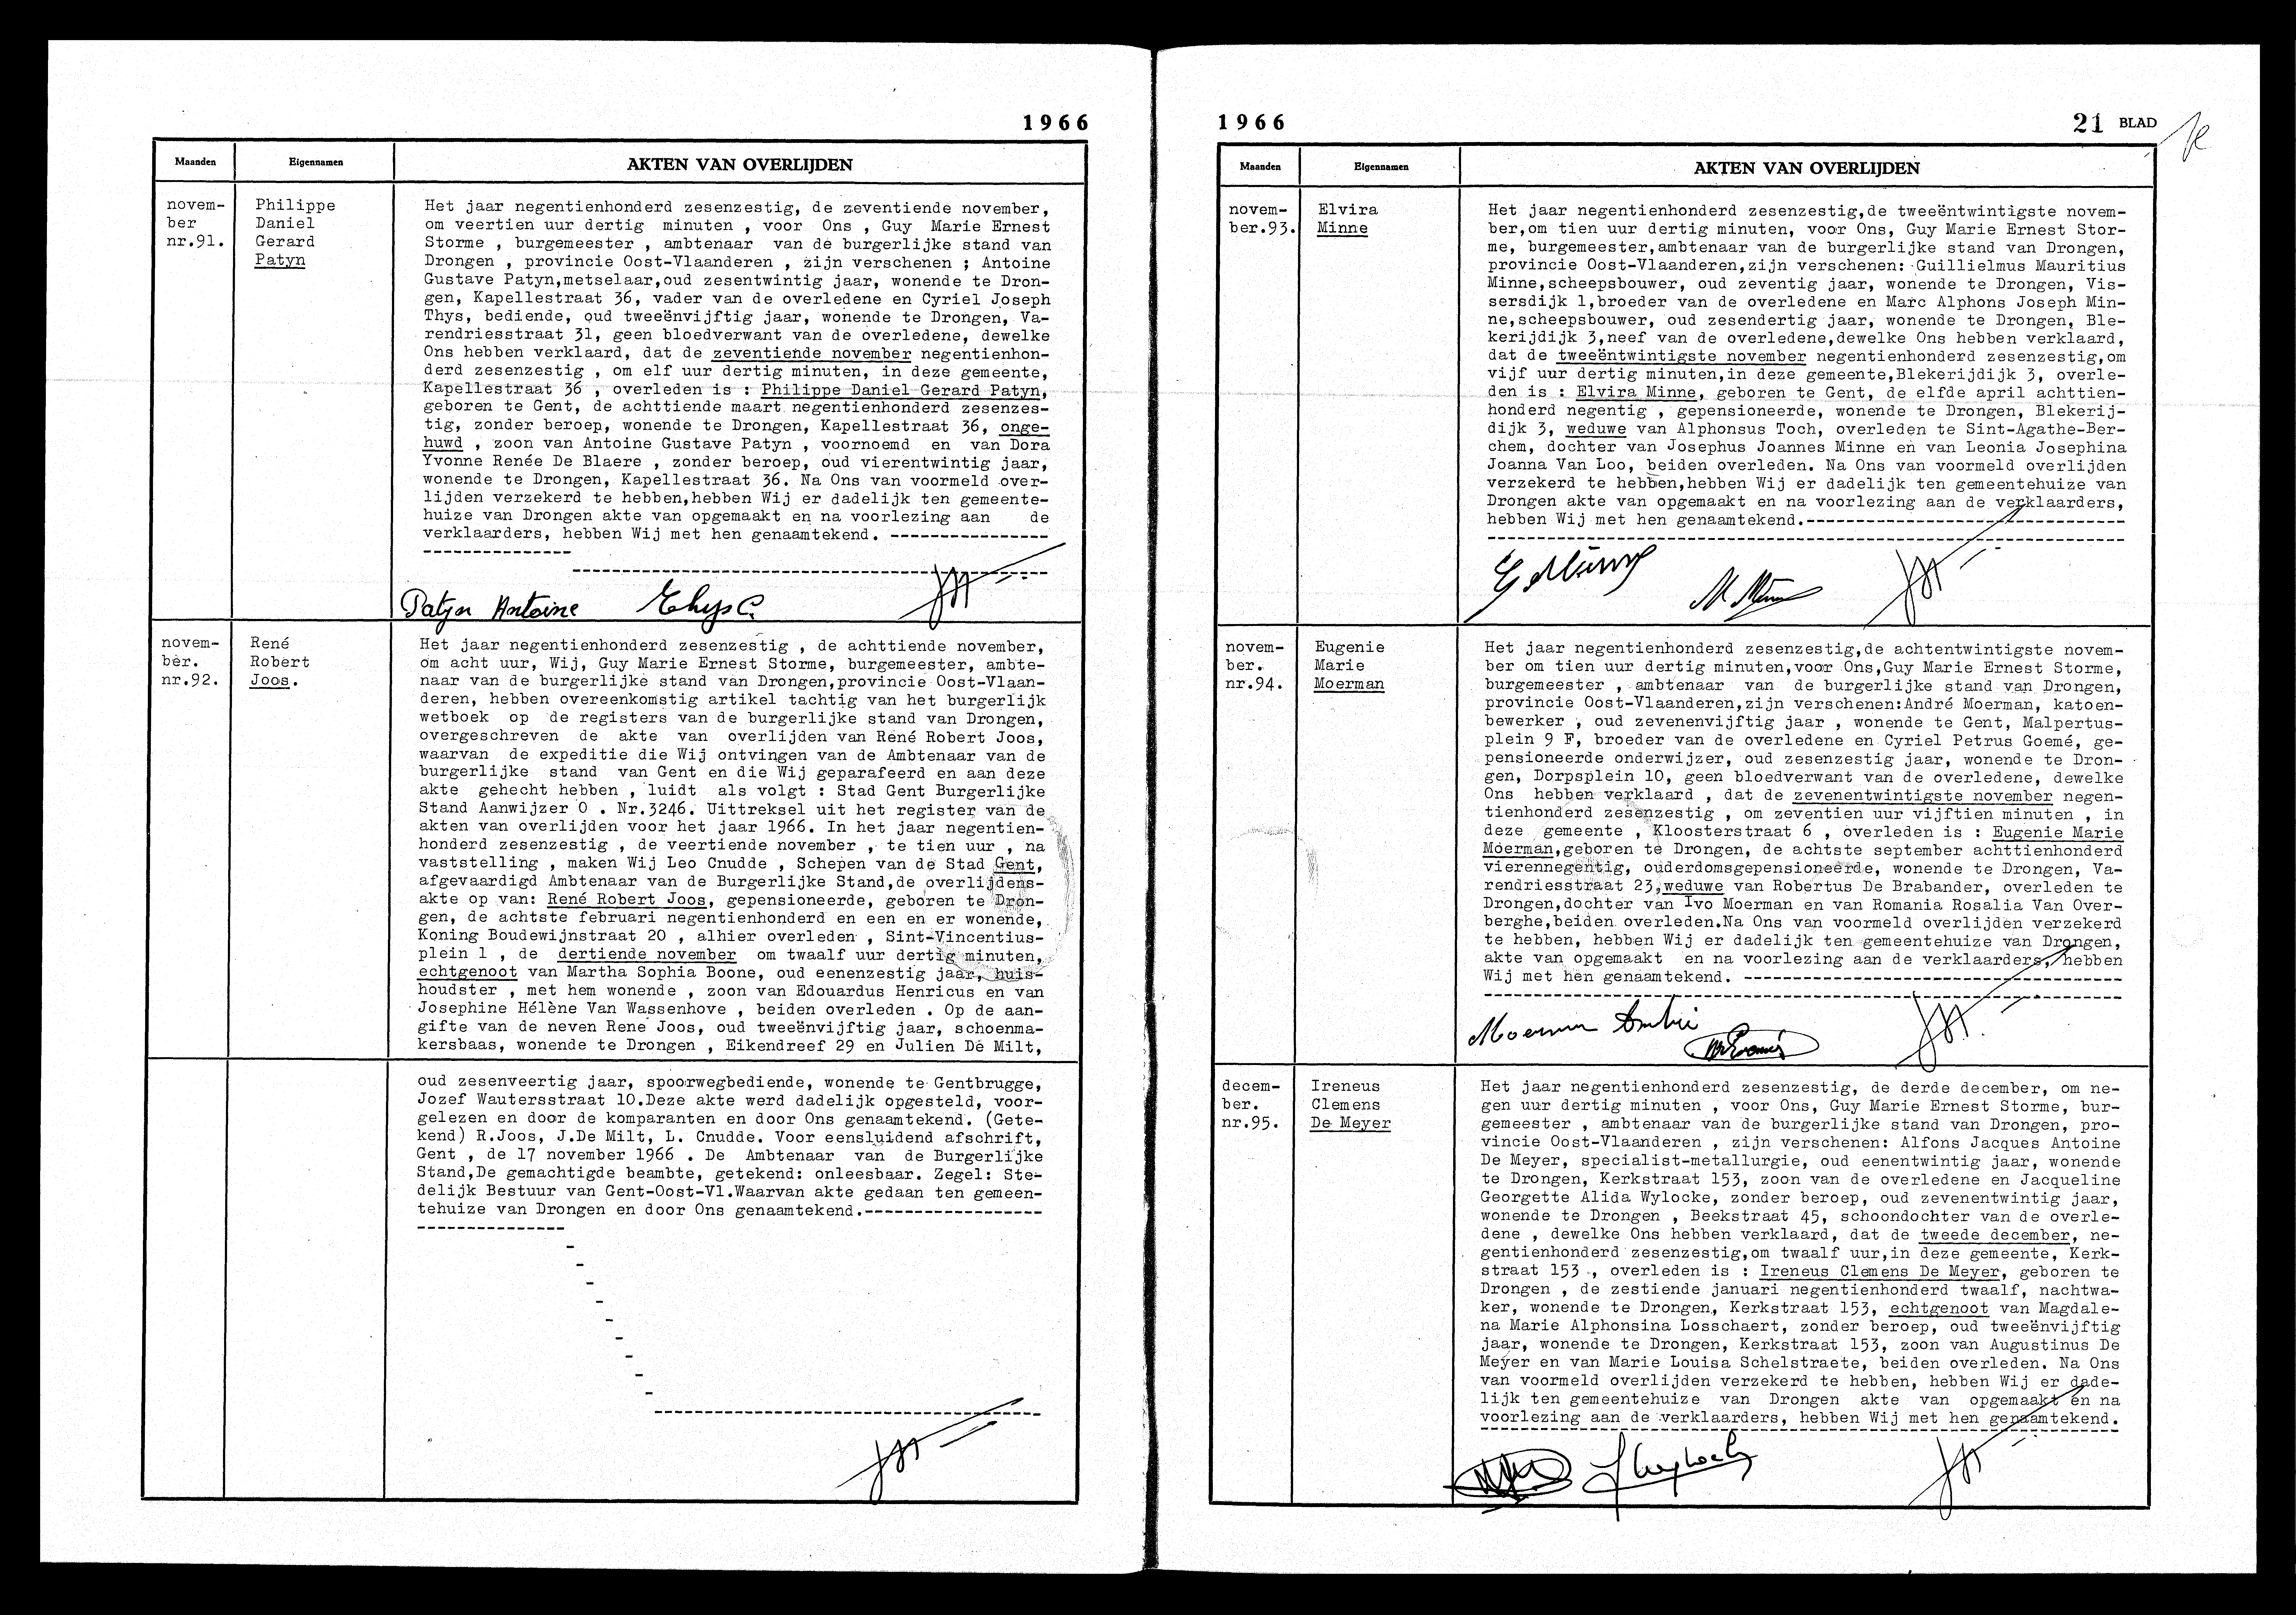 1966
Maanden
Eigennamen
AKTEN VAN OVERLIJDEN
novem-
ber
nr.91.
Philippe
Daniel
Gerard
Patyn
Het jaar negentienhonderd zesenzestig, de zeventiende november,
om veertien uur dertig minuten , voor Ons , Guy Marie Ernest
Storme , burgemeester , ambtenaar van de burgerlijke stand van
Drongen , provincie Oost-Vlaanderen , zijn verschenen ; Antoine
Gustave Patyn,metselaar,oud zesentwintig jaar, wonende te Dron-
gen, Kapellestraat 36, vader van de overledene en Cyriel Joseph
Thys, bediende, oud tweeënvijftig jaar, wonende te Drongen, Va-
rendriesstraat 31, geen bloedverwant van de overledene, dewelke
Ons hebben verklaard, dat de zeventiende november negentienhon-
derd zesenzestig , om elf uur dertig minuten, in deze gemeente,
Kapellestraat 36 , overleden is : Philippe Daniel Gerard Patyn,
geboren te Gent, de achttiende maart negentienhonderd zesenzes-
tig, zonder beroep, wonende te Drongen, Kapellestraat 36, onge-
huwd , zoon van Antoine Gustave Patyn , voornoemd en van Dora
Yvonne Renée De Blaere , zonder beroep, oud vierentwintig jaar,
wonende te Drongen, Kapellestraat 36. Na Ons van voormeld over-
lijden verzekerd te hebben,hebben Wij er dadelijk ten gemeente-
huize van Drongen akte van opgemaakt en na voorlezing aan de
verklaarders, hebben Wij met hen genaamtekend. ----------------
Patyn Antoine Thys C.
novem-
ber.
nr.92.
René
Robert
Joos.
Het jaar negentienhonderd zesenzestig , de achttiende november,
om acht uur, Wij, Guy Marie Ernest Storme, burgemeester, ambte-
naar van de burgerlijke stand van Drongen,provincie Oost-Vlaan-
deren, hebben overeenkomstig artikel tachtig van het burgerlijk
wetboek op de registers van de burgerlijke stand van Drongen,
overgeschreven de akte van overlijden van René Robert Joos,
waarvan de expeditie die Wij ontvingen van de Ambtenaar van de
burgerlijke stand van Gent en die Wij geparafeerd en aan deze
akte gehecht hebben , luidt als volgt : Stad Gent Burgerlijke
Stand Aanwijzer O . Nr.3246. Uittreksel uit het register van de
akten van overlijden voor het jaar 1966. In het jaar negentien-
honderd zesenzestig , de veertiende november , te tien uur , na
vaststelling , maken Wij Leo Cnudde , Schepen van de Stad Gent,
afgevaardigd Ambtenaar van de Burgerlijke Stand,de overlijdens-
akte op van: René Robert Joos, gepensioneerde, geboren te Dron-
gen, de achtste februari negentienhonderd en een en er wonende,
Koning Boudewijnstraat 20 , alhier overleden , Sint-Vincentius-
plein 1 , de dertiende november om twaalf uur dertig minuten,
echtgenoot van Martha Sophia Boone, oud eenenzestig jaar, huis-
houdster , met hem wonende , zoon van Edouardus Henricus en van
Josephine Hélène Van Wassenhove , beiden overleden . Op de aan-
gifte van de neven René Joos, oud tweeënvijftig jaar, schoenma-
kersbaas, wonende te Drongen , Eikendreef 29 en Julien De Milt,
oud zesenveertig jaar, spoorwegbediende, wonende te Gentbrugge,
Jozef Wautersstraat 10.Deze akte werd dadelijk opgesteld, voor-
gelezen en door de komparanten en door Ons genaamtekend. (Gete-
kend) R.Joos, J.De Milt, L. Cnudde. Voor eensluidend afschrift,
Gent , de 17 november 1966 . De Ambtenaar van de Burgerlijke
Stand,De gemachtigde beambte, getekend: onleesbaar. Zegel: Ste-
delijk Bestuur van Gent-Oost-Vl.Waarvan akte gedaan ten gemeen-
tehuize van Drongen en door Ons genaamtekend.------------------
1966
21 BLAD
Maanden
Eigennamen
AKTEN VAN OVERLIJDEN
novem-
ber.93.
Elvira
Minne
Het jaar negentienhonderd zesenzestig,de tweeëntwintigste novem-
ber,om tien uur dertig minuten, voor Ons, Guy Marie Ernest Stor-
me, burgemeester,ambtenaar van de burgerlijke stand van Drongen,
provincie Oost-Vlaanderen,zijn verschenen: Guillielmus Mauritius
Minne,scheepsbouwer, oud zeventig jaar, wonende te Drongen, Vis-
sersdijk 1,broeder van de overledene en Marc Alphons Joseph Min-
ne,scheepsbouwer, oud zesendertig jaar, wonende te Drongen, Ble-
kerijdijk 3,neef van de overledene,dewelke Ons hebben verklaard,
dat de tweeëntwintigste november negentienhonderd zesenzestig,om
vijf uur dertig minuten,in deze gemeente,Blekerijdijk 3, overle-
den is : Elvira Minne, geboren te Gent, de elfde april achttien-
honderd negentig , gepensioneerde, wonende te Drongen, Blekerij-
dijk 3, weduwe van Alphonsus Toch, overleden te Sint-Agathe-Ber-
chem, dochter van Josephus Joannes Minne en van Leonia Josephina
Joanna Van Loo, beiden overleden. Na Ons van voormeld overlijden
verzekerd te hebben,hebben Wij er dadelijk ten gemeentehuize van
Drongen akte van opgemaakt en na voorlezing aan de verklaarders,
hebben Wij met hen genaamtekend.--------------------------------
G Minne
M. Minne
novem-
ber.
nr.94.
Eugenie
Marie
Moerman
Het jaar negentienhonderd zesenzestig,de achtentwintigste novem-
ber om tien uur dertig minuten,voor Ons,Guy Marie Ernest Storme,
burgemeester , ambtenaar van de burgerlijke stand van Drongen,
provincie Oost-Vlaanderen,zijn verschenen:André Moerman, katoen-
bewerker , oud zevenenvijftig jaar , wonende te Gent, Malpertus-
plein 9 F, broeder van de overledene en Cyriel Petrus Goemé, ge-
pensioneerde onderwijzer, oud zesenzestig jaar, wonende te Dron-
gen, Dorpsplein 10, geen bloedverwant van de overledene, dewelke
Ons hebben verklaard , dat de zevenentwintigste november negen-
tienhonderd zesenzestig , om zeventien uur vijftien minuten , in
deze gemeente , Kloosterstraat 6 , overleden is : Eugenie Marie
Moerman,geboren te Drongen, de achtste september achttienhonderd
vierennegentig, ouderdomsgepensioneerde, wonende te Drongen, Va-
rendriesstraat 23,weduwe van Robertus De Brabander, overleden te
Drongen,dochter van Ivo Moerman en van Romania Rosalia Van Over-
berghe,beiden overleden.Na Ons van voormeld overlijden verzekerd
te hebben, hebben Wij er dadelijk ten gemeentehuize van Drongen,
akte van opgemaakt en na voorlezing aan de verklaarders, hebben
Wij met hen genaamtekend. --------------------------------------
Moerman André
decem-
ber.
nr.95.
Ireneus
Clemens
De Meyer
Het jaar negentienhonderd zesenzestig, de derde december, om ne-
gen uur dertig minuten , voor Ons, Guy Marie Ernest Storme, bur-
gemeester , ambtenaar van de burgerlijke stand van Drongen, pro-
vincie Oost-Vlaanderen , zijn verschenen: Alfons Jacques Antoine
De Meyer, specialist-metallurgie, oud eenentwintig jaar, wonende
te Drongen, Kerkstraat 153, zoon van de overledene en Jacqueline
Georgette Alida Wylocke, zonder beroep, oud zevenentwintig jaar,
wonende te Drongen , Beekstraat 45, schoondochter van de overle-
dene , dewelke Ons hebben verklaard, dat de tweede december, ne-
gentienhonderd zesenzestig,om twaalf uur,in deze gemeente, Kerk-
straat 153 , overleden is : Ireneus Clemens De Meyer, geboren te
Drongen , de zestiende januari negentienhonderd twaalf, nachtwa-
ker, wonende te Drongen, Kerkstraat 153, echtgenoot van Magdale-
na Marie Alphonsina Losschaert, zonder beroep, oud tweeënvijftig
jaar, wonende te Drongen, Kerkstraat 153, zoon van Augustinus De
Meyer en van Marie Louisa Schelstraete, beiden overleden. Na Ons
van voormeld overlijden verzekerd te hebben, hebben Wij er dade-
lijk ten gemeentehuize van Drongen akte van opgemaakt en na
voorlezing aan de verklaarders, hebben Wij met hen genaamtekend.